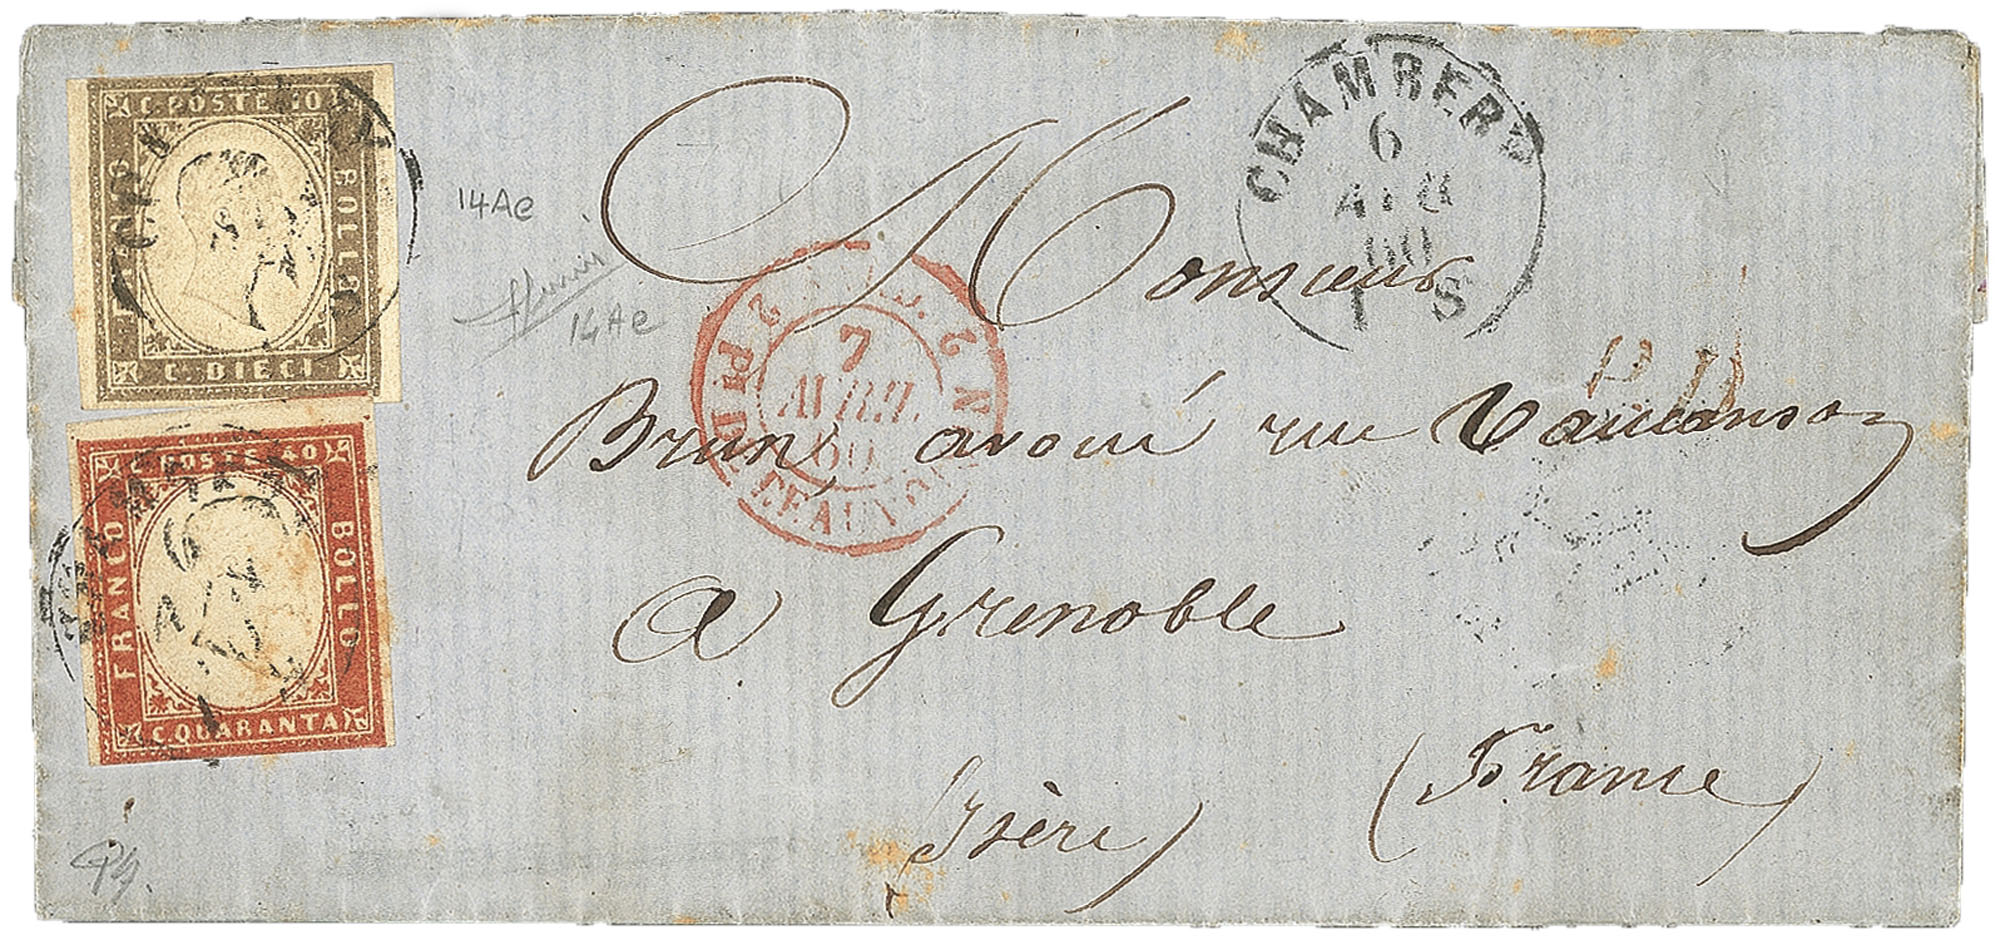 C. POSTE 10
FRANCO
BOLLO
C. DIECI
C. POSTE 40
FRANCO
BOLLO
C. QUARANTA
14Ae
14Ae
CHAMBERY
6
60
1 S
7
AVRIL
60
P.D.
Monsieur
Brun, avoué rue Vaucanson
a Grenoble
Isère)
(France)